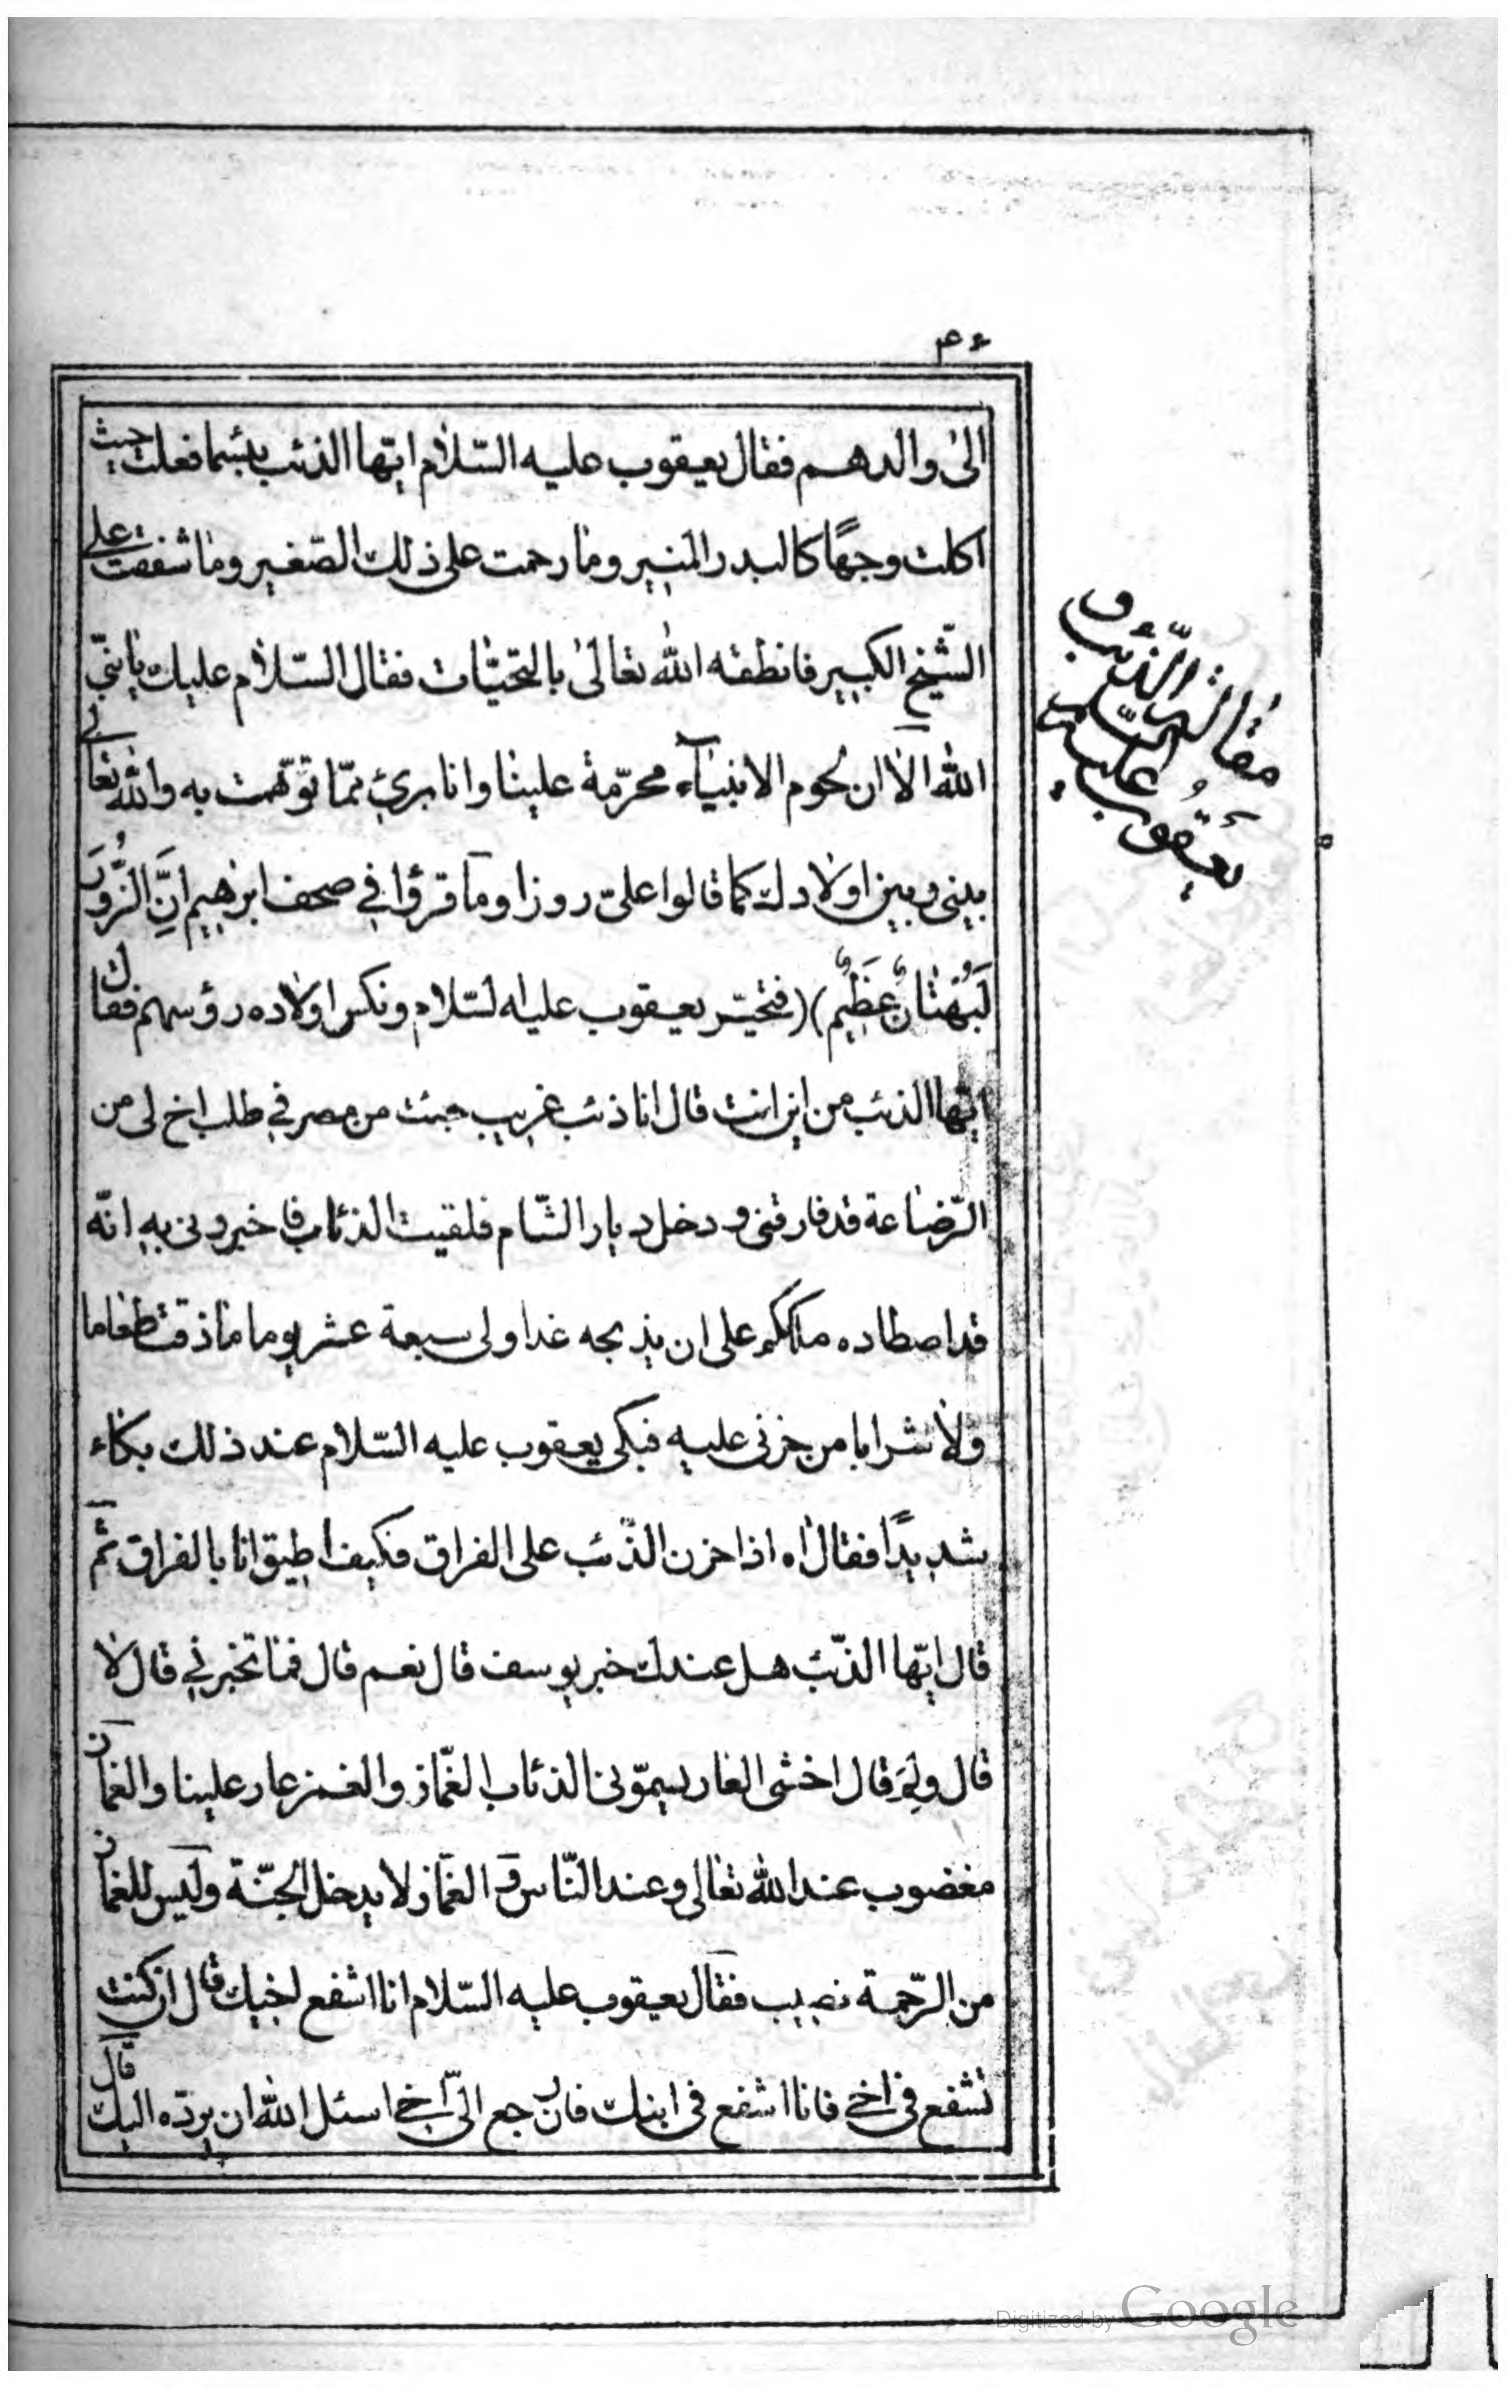 ٤٣
الىٰ والدهم فقال يعقوب عليه السّلام ايّها الذئب بئسما فعلت حيث
اكلت وجهًا كالبدر المنير وما رحمت على ذلك الصّغير وما شفقت على
الشّيخ الكبير فانطقه الله تعالىٰ بالتحيّات فقال السّلام عليك يا نبىّ
الله الا ان لحوم الانبيآء محرّمة علينا وانا برئ ممّا توّهمت به والله تعالى
بينى وبين اولادك كما قالوا علىّ روزا وما قرؤا فى صحف ابرٰهيم انَّ الزُّورَ
لَبُهْتَانٌ عَظِيْمٌ) (فتحيّر يعقوب عليه السّلام ونكس اولاده رؤسهم فقال
ايّها الذئب من اين انت قال انا ذئب غريب جئت من مصر فى طلب اخ لى من
الرّضاعة قد فارقنى ودخل ديار الشّام فلقيت الذئاب فاخبرونى به انّه
قد اصطاده ملككم على ان يذبحه غدا ولى سبعة عشر يوما ما ذقت طعاما
ولا شرابا من حزنى عليه فبكى يعقوب عليه السّلام عند ذلك بكاء
شديدًا فقال اٰه اذا حزن الذّئب على الفراق فكيف اطيق انا بالفراق ثمّ
قال ايّها الذّئب هل عندك خبر يوسف قال نعم قال فما تخبرنى قال لا
قال ولِمَ قال اخشى العار يسمّونى الذئاب الغمّاز والغمز عار علينا والغماز
مغضوب عند الله تعالى وعند النّاس و الغمّاز لا يدخل الجنّة وليس للغماز
من الرّحمة نصيب فقال يعقوب عليه السّلام انا اشفع لخيك قال ان كنت
تشفع فى اخى فانا اشفع فى ابنك فان رجع الىّ اخى اسئل الله ان يردّه اليك قال
مقالة الذّئب و
يعقوب عليه السّلام
Digitized by Google